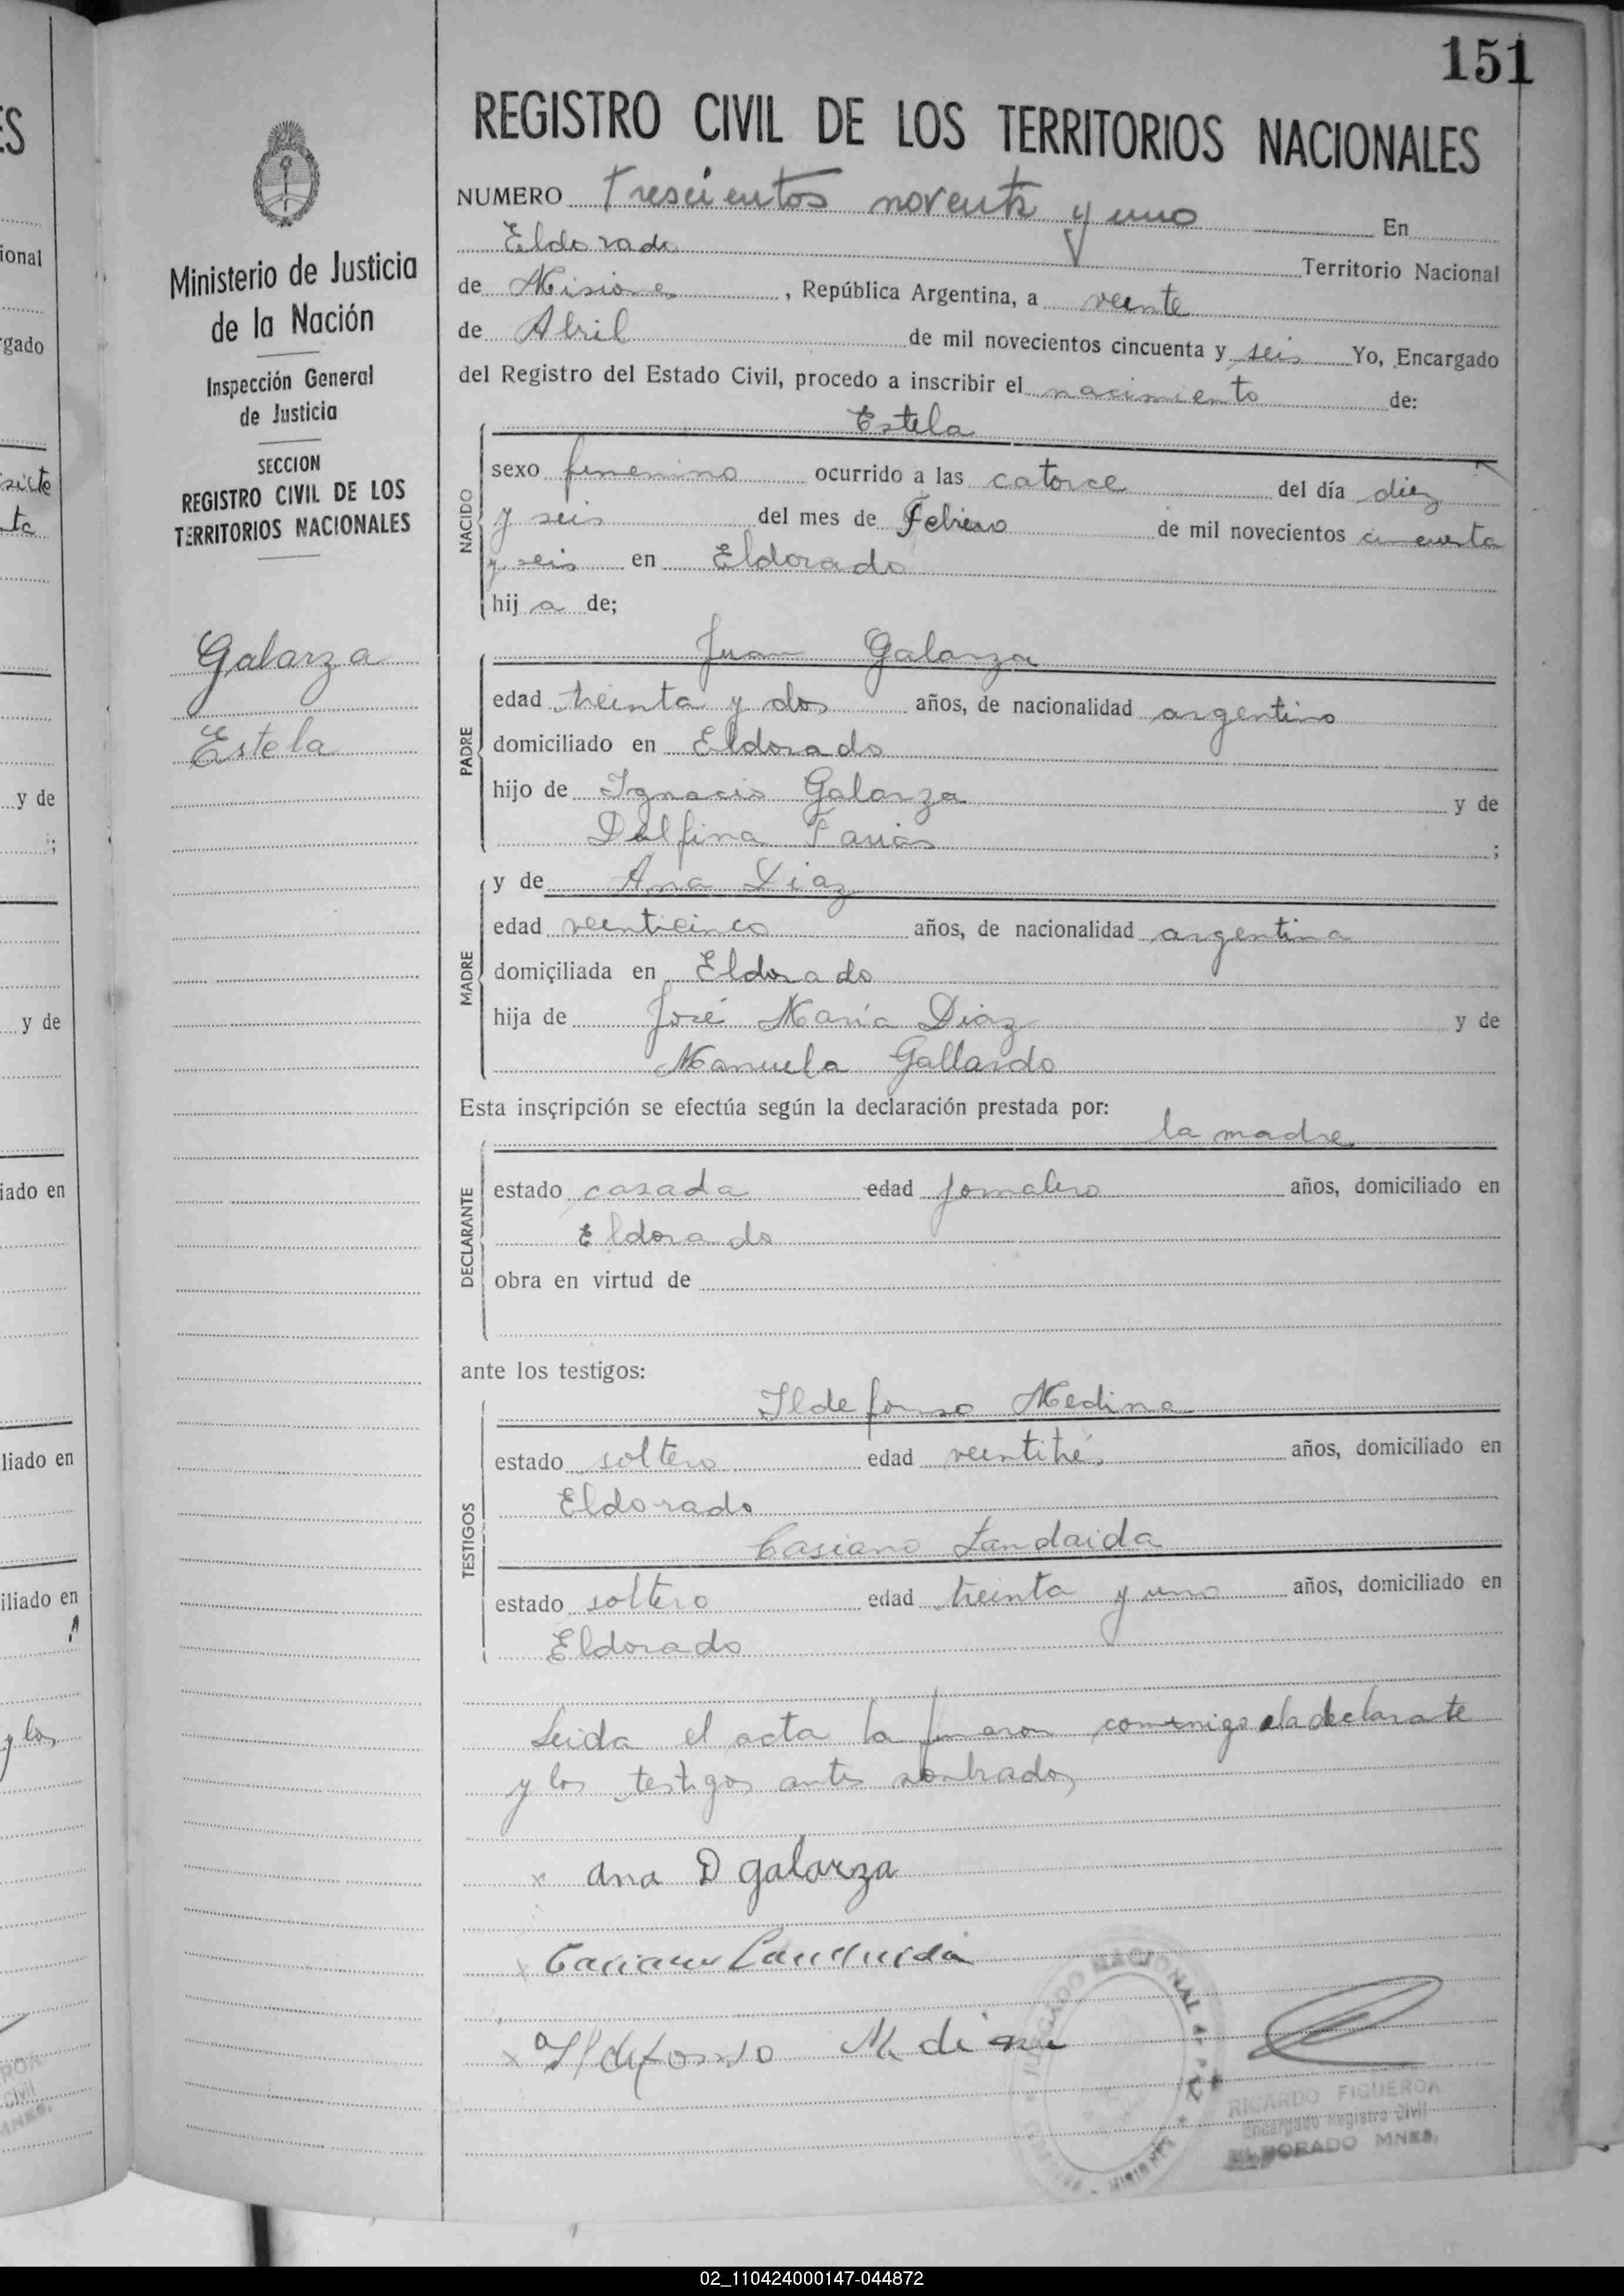 151
REGISTRO CIVIL DE LOS TERRITORIOS NACIONALES
Ministerio de Justicia
de la Nación
Inspección General
de Justicia
SECCION
REGISTRO CIVIL DE LOS
TERRITORIOS NACIONALES
Galarza
Estela
NUMERO Trescientos noventa y uno En
Eldorado Territorio Nacional
de Misiones, República Argentina, a veinte
de Abril de mil novecientos cincuenta y seis Yo, Encargado
del Registro del Estado Civil, procedo a inscribir el nacimiento de:
Estela
NACIDO
sexo femenino ocurrido a las catorce del día diez
y seis del mes de Febrero de mil novecientos cincuenta
y seis en Eldorado
hija de;
Juan Galarza
PADRE
edad treinta y dos años, de nacionalidad argentino
domiciliado en Eldorado
hijo de Ignacio Galarza y de
Delfina Farias ;
MADRE
y de Ana Diaz
edad veinticinco años, de nacionalidad argentina
domiciliada en Eldorado
hija de José María Diaz y de
Manuela Gallardo
Esta inscripción se efectúa según la declaración prestada por:
la madre
DECLARANTE
estado casada edad jornalero años, domiciliado en
Eldorado
obra en virtud de
ante los testigos:
TESTIGOS
Ildefonso Medina
estado soltero edad veintitrés años, domiciliado en
Eldorado
Casiano Landaida
estado soltero edad treinta y uno años, domiciliado en
Eldorado
Leida el acta la firmaron conmigo la declarate
y los testigos antes nombrados
x Ana D galarza
x Casiano Landaida
x Ildefonso Medina
JUZGADO NACIONAL DE PAZ
RICARDO FIGUEROA
Encargado Registro Civil
ELDORADO MNES.
02_110424000147-044872